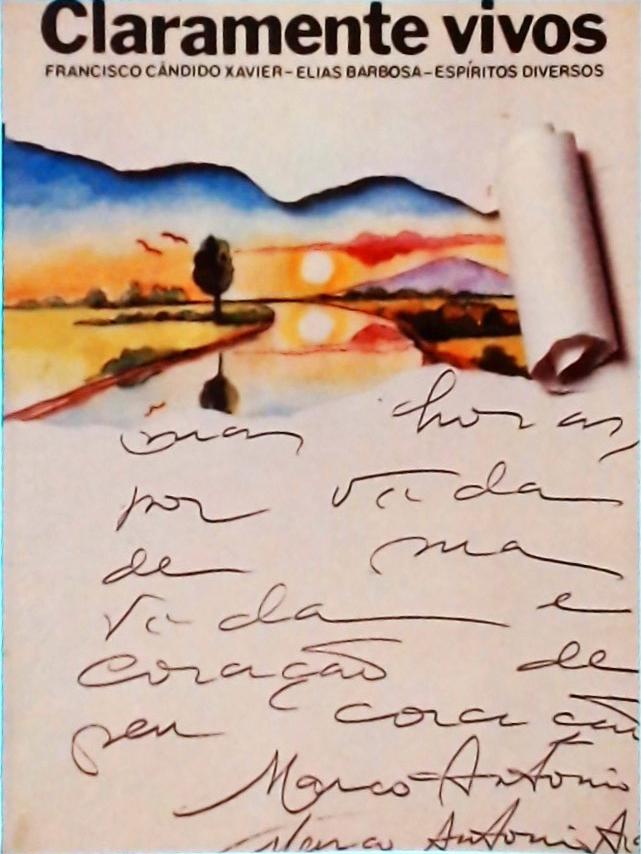 Claramente vivos
FRANCISCO CÂNDIDO XAVIER – ELIAS BARBOSA – ESPÍRITOS DIVERSOS
horas,
por vida
de
vida e
coração de
seu coração
Marco Antônio
Marco Antonio